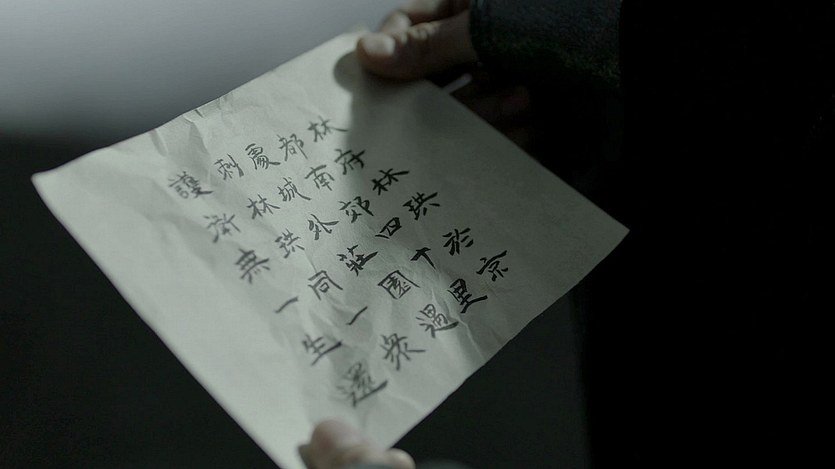 林府林珙於京
都南郊四十里
處城外莊園遇
刺林珙同一眾
護衛無一生還